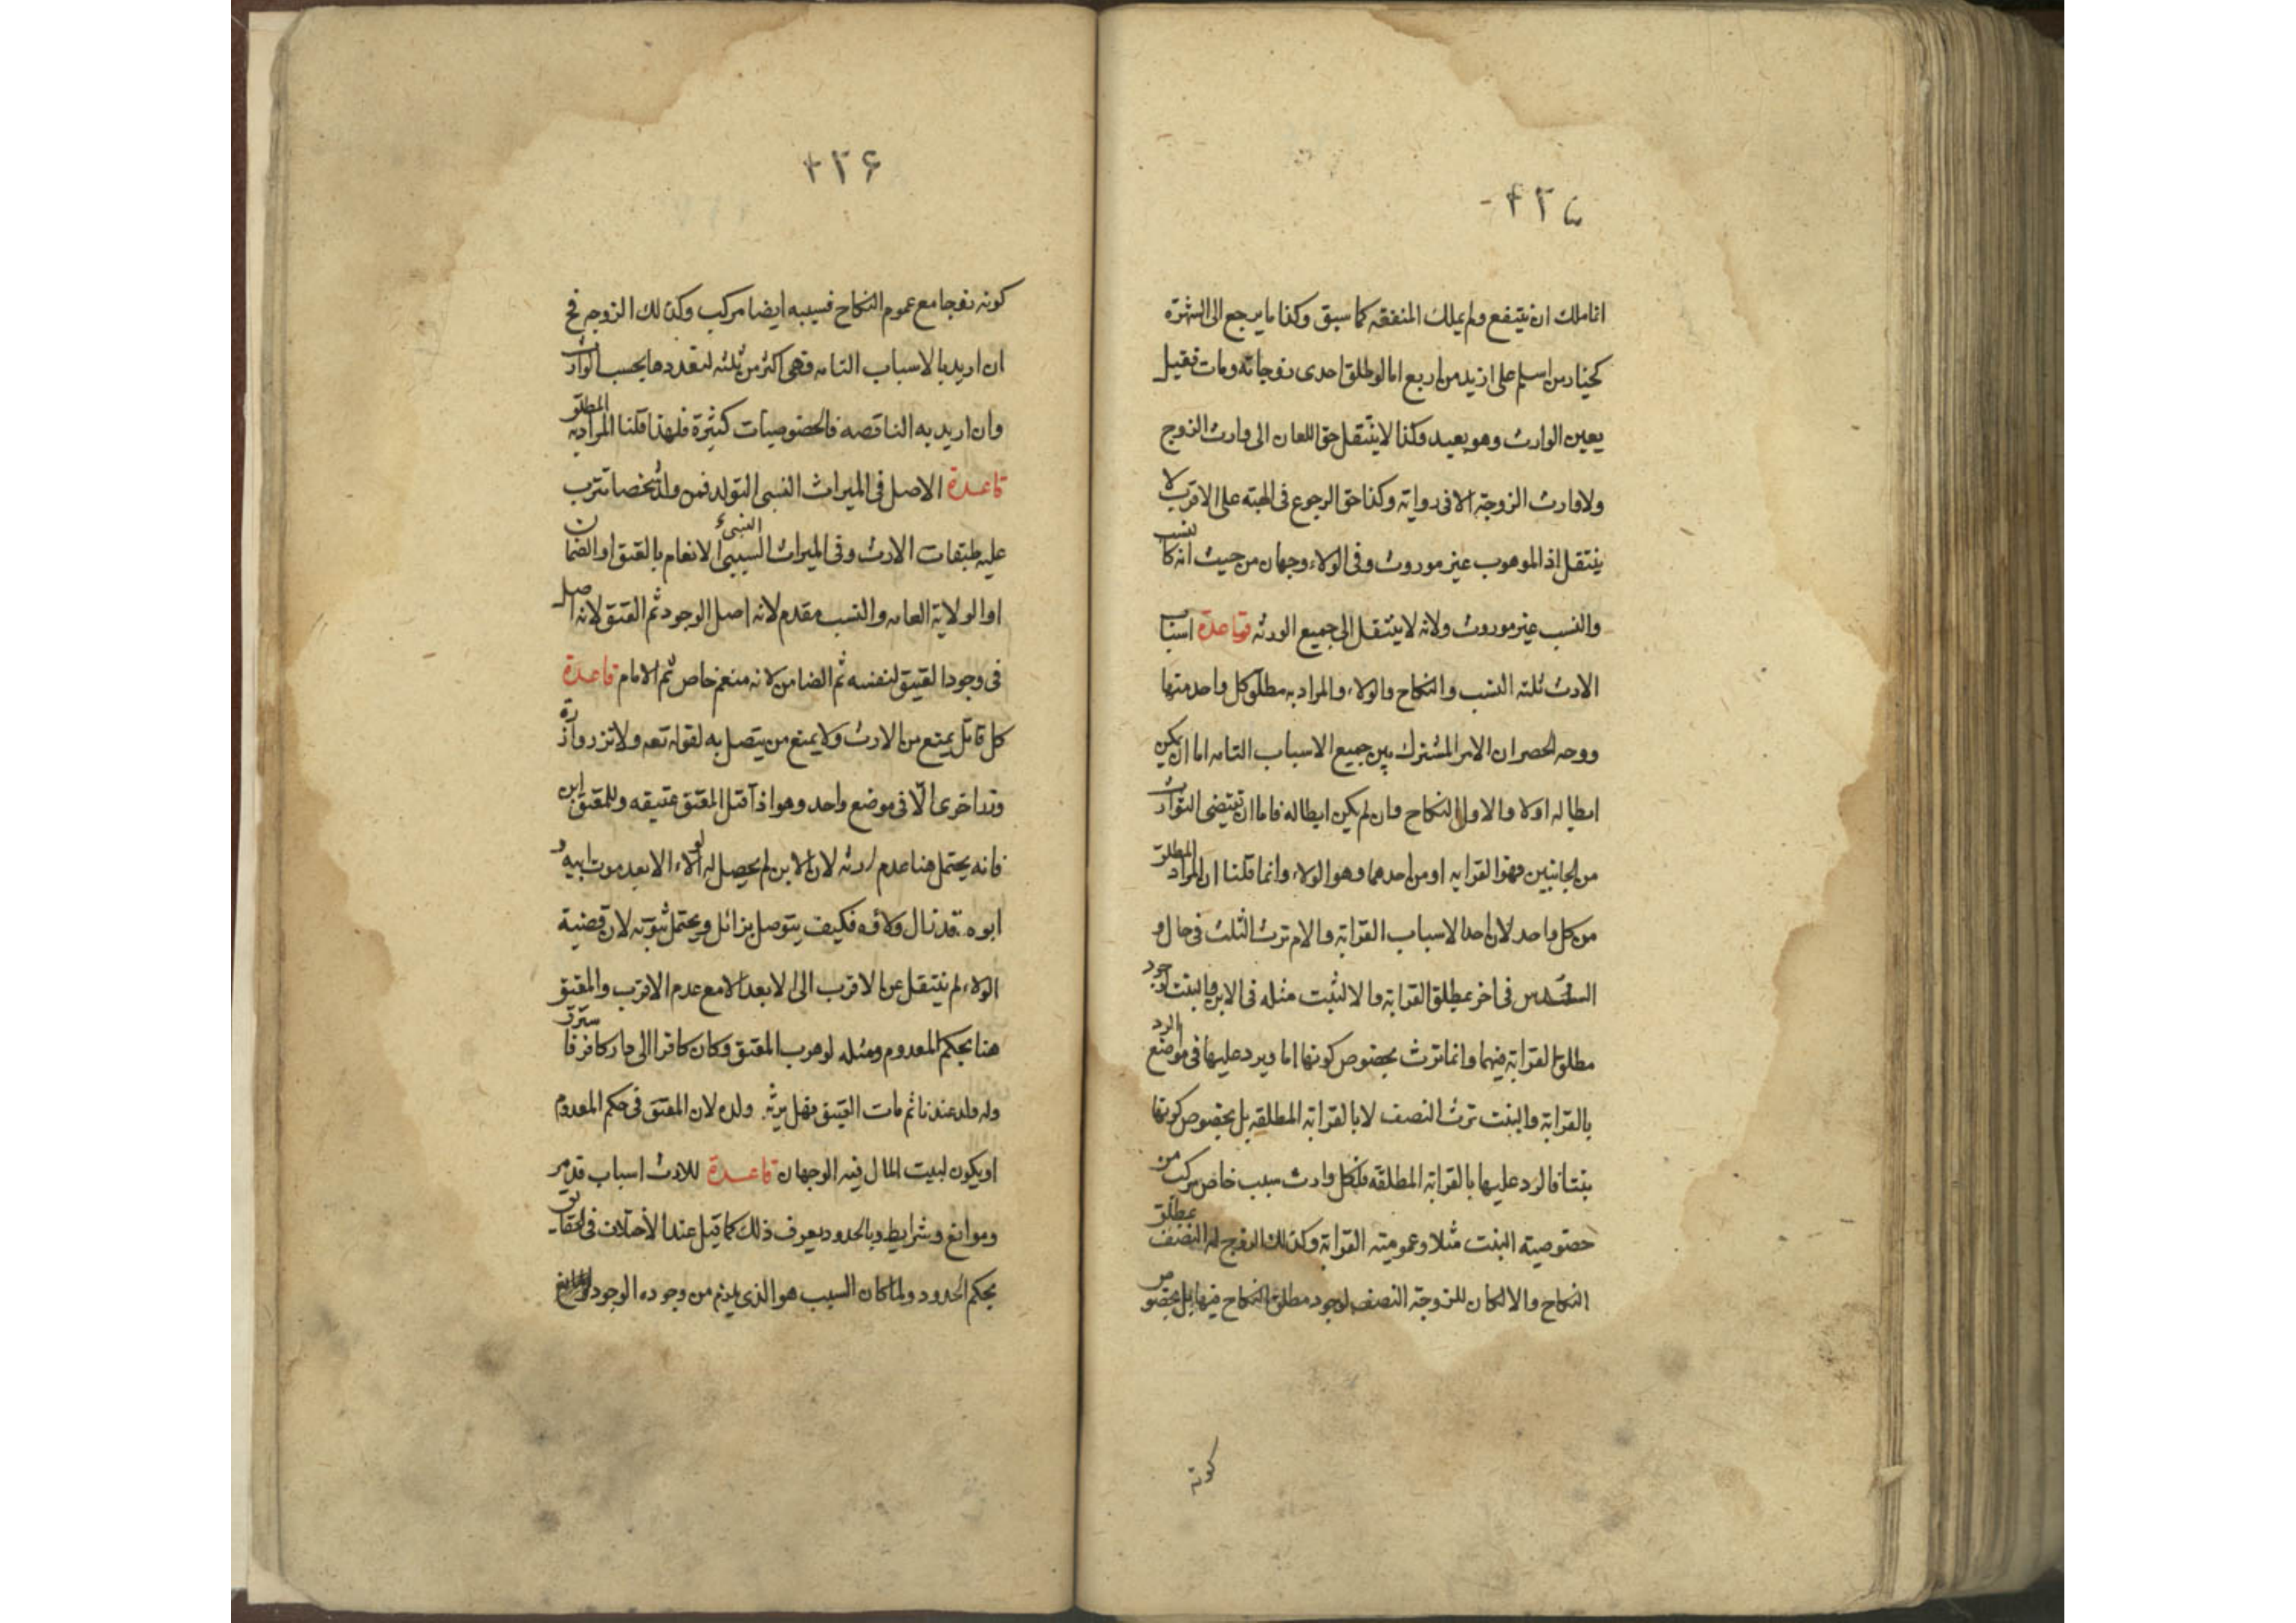 ۴۲۵
انما ملك ان ينتفع ولم يملك المنفعة كما سبق وكذا ما يرجع الى الشهوة
كخيار من اسلم على ازيد من اربع اما لو طلق احدى زوجاته ومات فقيل
يعين الوارث وهو بعيد وكذا لا ينتقل حق اللعان الى وارث الزوج
ولا وارث الزوجة الا فى رواية وكذا حق الرجوع فى الهبة على الاقرب لا
ينتقل اذ الموهوب غير موروث وفى الولاء وجهان من حيث انه كالنسب
والنسب غير موروث ولانه لا ينتقل الى جميع الورثه قاعدة اسباب
الارث ثلثه النسب والنكاح والولاء والمراد به مطلق كل واحد منها
ووجه الحصر ان الامر المشترك بين جميع الاسباب التامه اما ان يمكن
ابطاله او لا والاول النكاح وان لم يكن ابطاله فاما ان تقتضى التوارث
من الجانبين فهو القرابه او من احدهما وهو الولاء وانما قلنا ان المراد المطلق
من كل واحد لان احد الاسباب القرابة والام ترث الثلث فى حال و
السدس فى اخر بمطلق القرابة والا لثبت مثله فى الابن والبنت لوجود
مطلق القرابة فيهما وانما ترث بخصوص كونها اما ويرد عليها فى موضع الرد
بالقرابة والبنت ترث النصف لا بالقرابة المطلقه بل بخصوص كونها
بنتا فالرد عليها بالقرابة المطلقه فلكل وارث سبب خاص مركب من
خصوصية البنت مثلا وعمومية القرابة وكذلك الزوج له النصف بمطلق
النكاح والا لكان للزوجة النصف لوجود مطلق النكاح فيها بل بخصوص
كونه
۴۲۶
كونه زوجا مع عموم النكاح فسببه ايضا مركب وكذلك الزوجه فح
ان اريد بالاسباب التامه فهى اكثر من ثلثه لتعددها بحسب الوارث
وان اريد به الناقصه فالخصوصيات كثيرة فلهذا قلنا المراد به المطلق
قاعدة الاصل فى الميراث النسبى التولد فمن ولد شخصا ترتب
عليه طبقات الارث وفى الميراث السببى النسبى الانعام بالعتق او الضمان
او الولاية العامه والنسب مقدم لانه اصل الوجود ثم العتق لانه اصل
فى وجود العتيق لنفسه ثم الضامن لانه منعم خاص ثم الامام قاعدة
كل قاتل يمنع من الارث ولا يمنع من يتصل به لقوله تعه ولا تزر وازرة
وزر اخرى الا فى موضع واحد وهو اذا قتل المعتق عتيقه وللمعتق ابن
فانه يحتمل هنا عدم ارثه لان الابن لم يحصل له الولاء الا بعد موت ابيه و
ابوه قد زال ولاؤه فكيف يتوصل بزائل ويحتمل ثبوته لان قضية
الولاء لم ينتقل عن الاقرب الى الابعد الا مع عدم الاقرب والمعتق
هنا بحكم المعدوم ومثله لو هرب المعتق وكان كافرا الى دار كافر فاسترق
وله ولد عندنا ثم مات العتيق فهل يرثه ولده لان المعتق فى حكم المعدوم
او يكون لبيت المال فيه الوجهان قاعدة للارث اسباب قد مر
وموانع وشرايط وبالحدود يعرف ذلك كما قيل عند الاختلاف فى الحقايق
بحكم الحدود ولما كان السبب هو الذى يلزم من وجوده الوجود